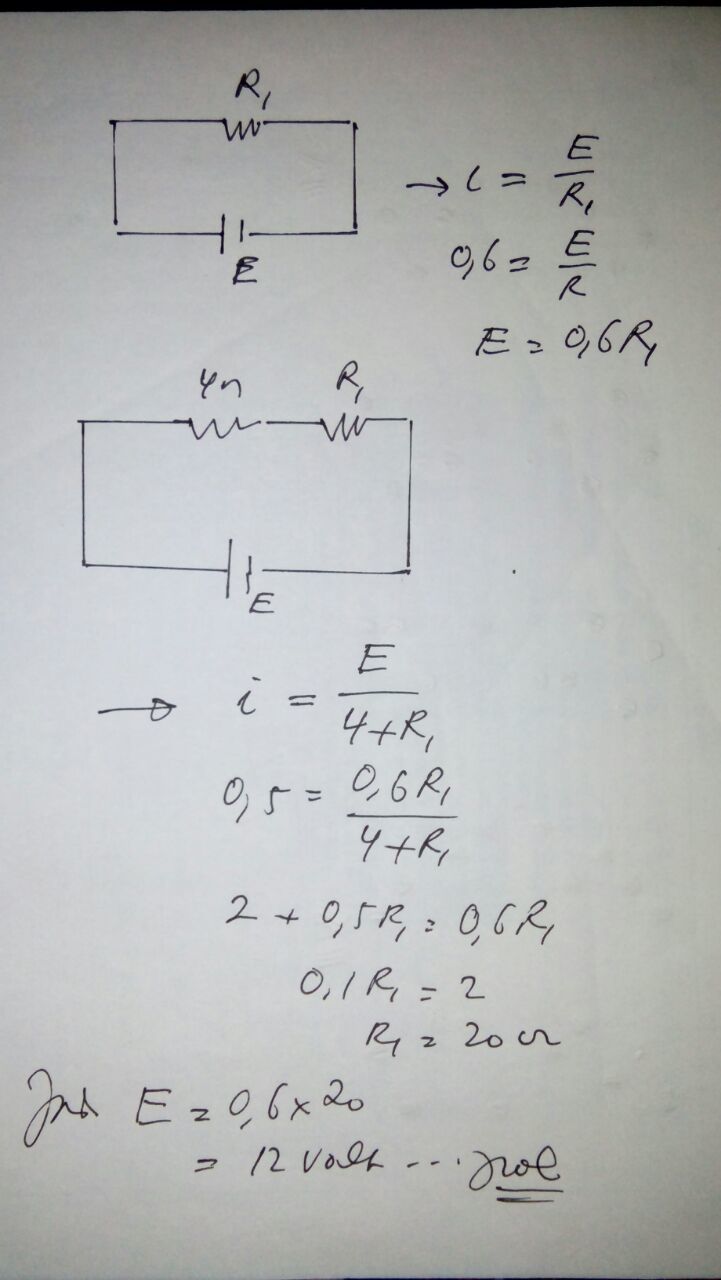 R₁
→ i = E/R₁
0,6 = E/R
E
E = 0,6R₁
4Ω R₁
E
→ i = E/(4+R₁)
0,5 = 0,6R₁/(4+R₁)
2 + 0,5R₁ = 0,6R₁
0,1R₁ = 2
R₁ = 20 Ω
E = 0,6 x 20
= 12 volt ...